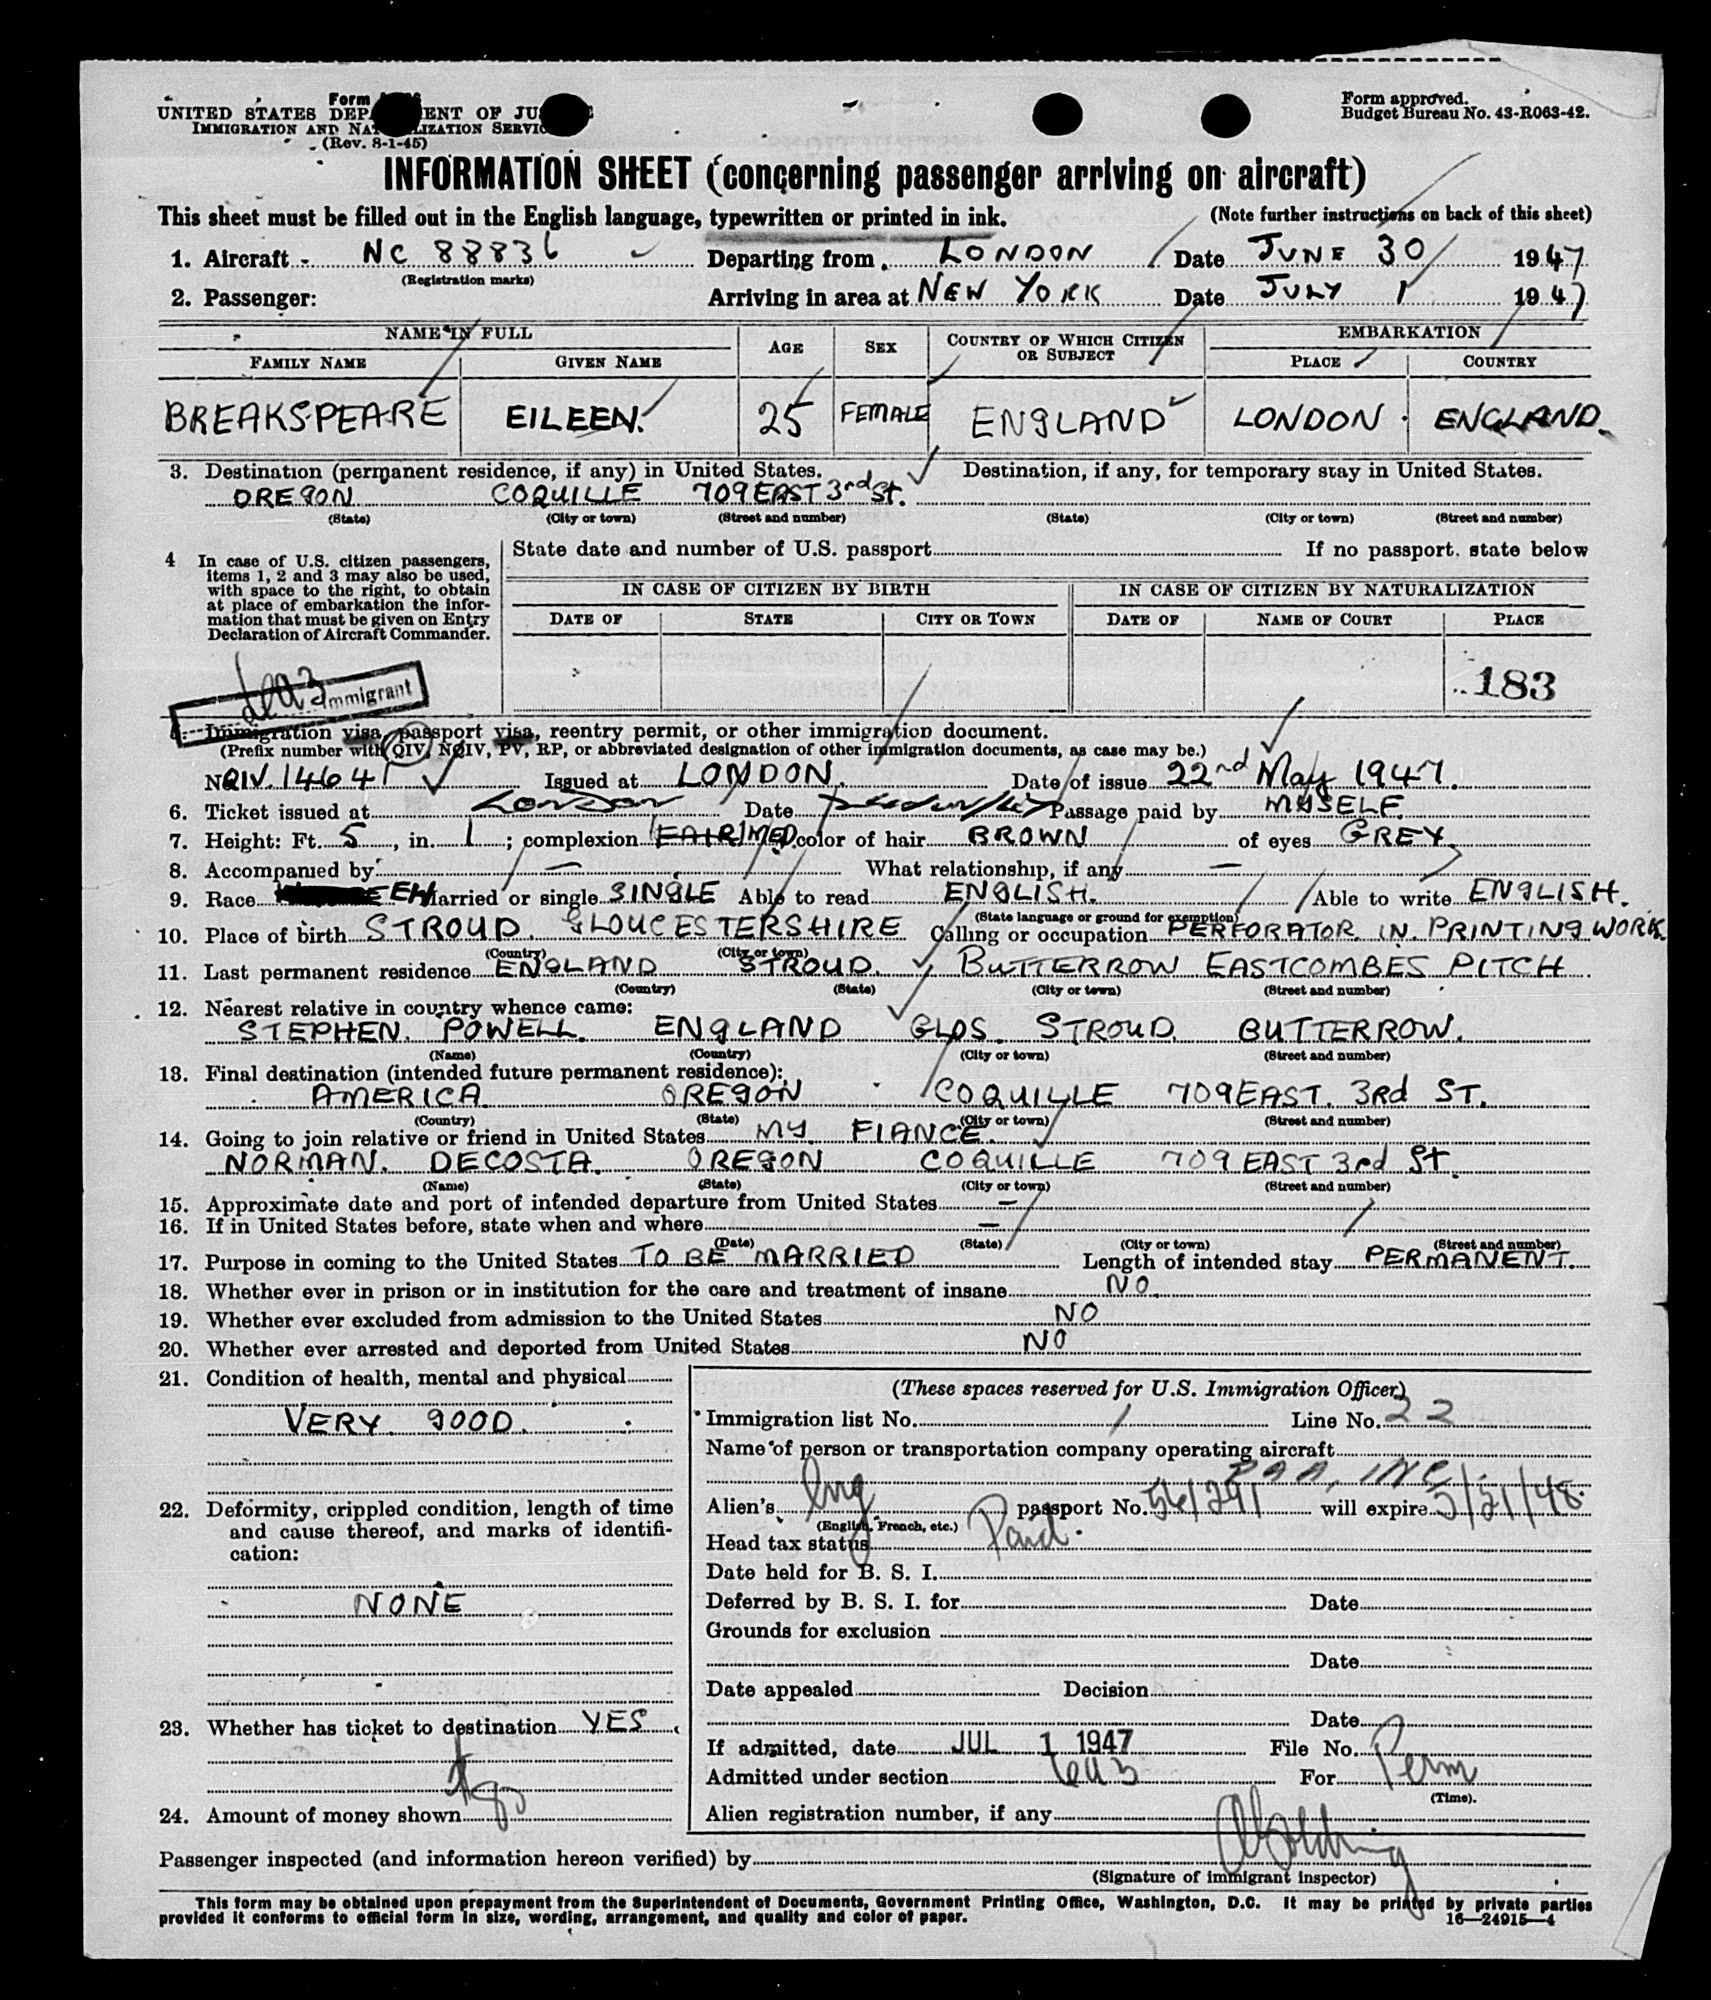 Form
UNITED STATES DEPARTMENT OF JUSTICE
IMMIGRATION AND NATURALIZATION SERVICE
(Rev. 8-1-45)
Form approved.
Budget Bureau No. 43-R063-42.
INFORMATION SHEET (concerning passenger arriving on aircraft)
This sheet must be filled out in the English language, typewritten or printed in ink. (Note further instructions on back of this sheet)
1. Aircraft NC 88836 Departing from LONDON Date JUNE 30 1947
(Registration marks)
2. Passenger: Arriving in area at NEW YORK Date JULY 1 1947
NAME IN FULL AGE SEX COUNTRY OF WHICH CITIZEN OR SUBJECT EMBARKATION
FAMILY NAME GIVEN NAME PLACE COUNTRY
BREAKSPEARE EILEEN. 25 FEMALE ENGLAND LONDON ENGLAND.
3. Destination (permanent residence, if any) in United States. Destination, if any, for temporary stay in United States.
OREGON COQUILLE 709 EAST 3rd St.
(State) (City or town) (Street and number) (State) (City or town) (Street and number)
4 In case of U.S. citizen passengers, items 1, 2 and 3 may also be used, with space to the right, to obtain at place of embarkation the information that must be given on Entry Declaration of Aircraft Commander.
State date and number of U.S. passport If no passport, state below
IN CASE OF CITIZEN BY BIRTH IN CASE OF CITIZEN BY NATURALIZATION
DATE OF STATE CITY OR TOWN DATE OF NAME OF COURT PLACE
183
Immigrant
5. Immigration visa, passport visa, reentry permit, or other immigration document.
(Prefix number with QIV, NQIV, PV, RP, or abbreviated designation of other immigration documents, as case may be.)
No. QIV. 14641 Issued at LONDON. Date of issue 22nd May 1947.
6. Ticket issued at London Date Passage paid by MYSELF.
7. Height: Ft. 5, in. 1; complexion (FAIR) MED. color of hair BROWN of eyes GREY.
8. Accompanied by — What relationship, if any —
9. Race Married or single SINGLE Able to read ENGLISH. Able to write ENGLISH.
(State language or ground for exemption)
10. Place of birth STROUD. GLOUCESTERSHIRE Calling or occupation PERFORATOR IN PRINTING WORK.
(Country) (City or town)
11. Last permanent residence ENGLAND STROUD. BUTTERROW EASTCOMBES PITCH
(Country) (State) (City or town) (Street and number)
12. Nearest relative in country whence came:
STEPHEN. POWELL. ENGLAND GLOS. STROUD. BUTTERROW.
(Name) (Country) (City or town) (Street and number)
13. Final destination (intended future permanent residence):
AMERICA OREGON COQUILLE 709 EAST. 3Rd ST.
(Country) (State) (City or town) (Street and number)
14. Going to join relative or friend in United States MY FIANCE.
NORMAN. DECOSTA. OREGON COQUILLE 709 EAST 3rd St.
(Name) (State) (City or town) (Street and number)
15. Approximate date and port of intended departure from United States —
16. If in United States before, state when and where —
(Date) (State) (City or town) (Street and number)
17. Purpose in coming to the United States TO BE MARRIED Length of intended stay PERMANENT.
18. Whether ever in prison or in institution for the care and treatment of insane NO.
19. Whether ever excluded from admission to the United States NO
20. Whether ever arrested and deported from United States NO
21. Condition of health, mental and physical
VERY GOOD.
22. Deformity, crippled condition, length of time and cause thereof, and marks of identification:
NONE
23. Whether has ticket to destination YES
24. Amount of money shown
(These spaces reserved for U.S. Immigration Officer)
Immigration list No. 1 Line No. 22
Name of person or transportation company operating aircraft
PAA, INC.
Alien's Eng passport No. will expire 5/21/48
(English, French, etc.)
Head tax status Paid.
Date held for B. S. I.
Deferred by B. S. I. for Date
Grounds for exclusion
Date
Date appealed Decision
Date
If admitted, date JUL 1 1947 File No.
Admitted under section 6a3 For Perm
(Time).
Alien registration number, if any
Passenger inspected (and information hereon verified) by
(Signature of immigrant inspector)
This form may be obtained upon prepayment from the Superintendent of Documents, Government Printing Office, Washington, D.C. It may be printed by private parties
provided it conforms to official form in size, wording, arrangement, and quality and color of paper. 16—24915-4